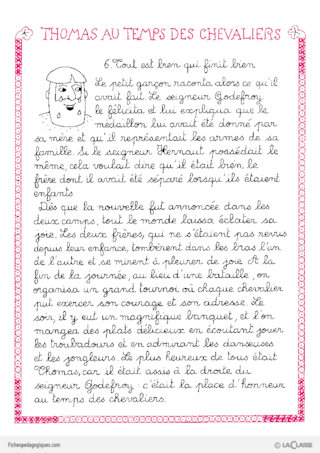 THOMAS AU TEMPS DES CHEVALIERS
6. Tout est bien qui finit bien
Le petit garçon raconta alors ce qu'il
avait fait. Le seigneur Godefroy
le félicita et lui expliqua que le
médaillon lui avait été donné par
sa mère et qu'il représentait les armes de sa
famille. Si le seigneur Hernaut possédait le
même, cela voulait dire qu'il était bien le
frère dont il avait été séparé lorsqu'ils étaient
enfants.
Dès que la nouvelle fut annoncée dans les
deux camps, tout le monde laissa éclater sa
joie. Les deux frères, qui ne s'étaient pas revus
depuis leur enfance, tombèrent dans les bras l'un
de l'autre et se mirent à pleurer de joie. A la
fin de la journée, au lieu d'une bataille, on
organisa un grand tournoi où chaque chevalier
put exercer son courage et son adresse. Le
soir, il y eut un magnifique banquet, et l'on
mangea des plats délicieux en écoutant jouer
les troubadours et en admirant les danseuses
et les jongleurs. Le plus heureux de tous était
Thomas, car il était assis à la droite du
seigneur Godefroy : c'était la place d'honneur
au temps des chevaliers.
Fichespedagogiques.com
© LA CLASSE